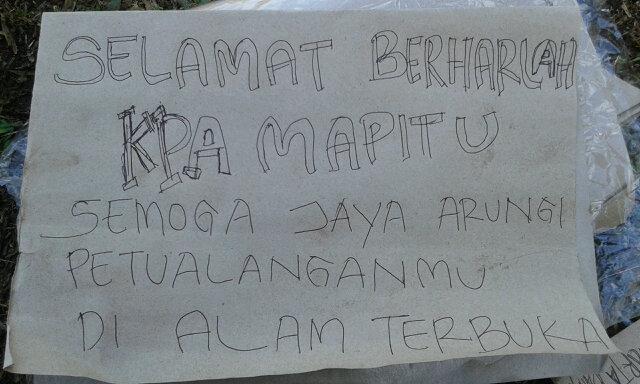 SELAMAT BERHARLAH
KPA MAPITU
SEMOGA JAYA ARUNGI
PETUALANGANMU
DI ALAM TERBUKA